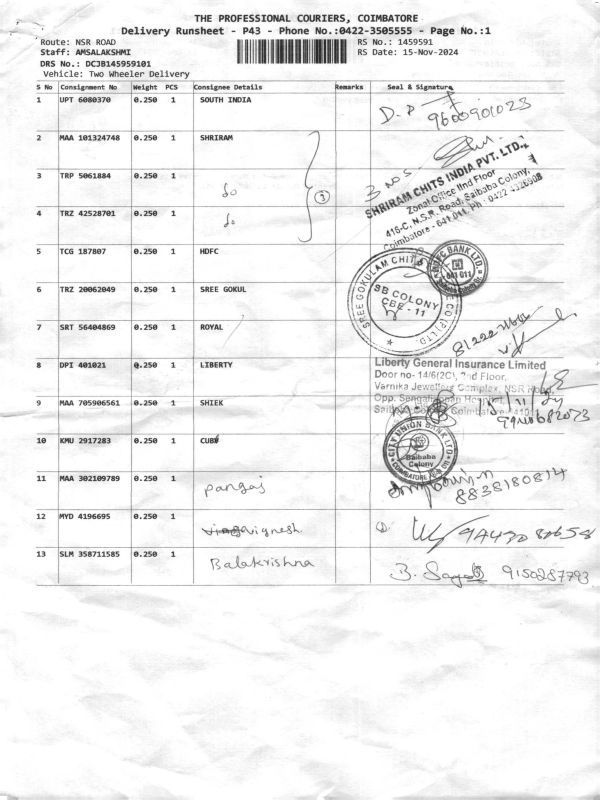 THE PROFESSIONAL COURIERS, COIMBATORE
Delivery Runsheet - P43 - Phone No.:0422-3505555 - Page No.:1
Route: NSR ROAD RS No.: 1459591
Staff: AMSALAKSHMI RS Date: 15-Nov-2024
DRS No.: DCJB145959101
Vehicle: Two Wheeler Delivery
S No Consignment No Weight PCS Consignee Details Remarks Seal & Signature
1 UPT 6080370 0.250 1 SOUTH INDIA D.P
9600901023
2 MAA 101324748 0.250 1 SHRIRAM
3 TRP 5061884 0.250 1 do 3 3 NOS
SHRIRAM CHITS INDIA PVT. LTD.,
Zonal Office IInd Floor
416-C, N.S.R. Road, Saibaba Colony,
Coimbatore - 641 011. Ph : 0422 4326908
4 TRZ 42528701 0.250 1 do
5 TCG 187807 0.250 1 HDFC
HDFC BANK LTD.
641 011
6 TRZ 20062049 0.250 1 SREE GOKUL
SREE GOKULAM CHIT
SB COLONY
CBE - 11
7 SRT 56404869 0.250 1 ROYAL
8 DPI 401021 0.250 1 LIBERTY
Liberty General Insurance Limited
Door no- 14/6(2C), 2nd Floor,
Varnika Jewellers Complex, NSR Road,
Opp.
9 MAA 705906561 0.250 1 SHIEK
10 KMU 2917283 0.250 1 CUB
CITY UNION BANK LTD
Saibaba
Colony
COIMBATORE
11 MAA 302109789 0.250 1 pangaj
8838180814
12 MYD 4196695 0.250 1 vignesh
13 SLM 358711585 0.250 1 Balakrishna B. 9150287793